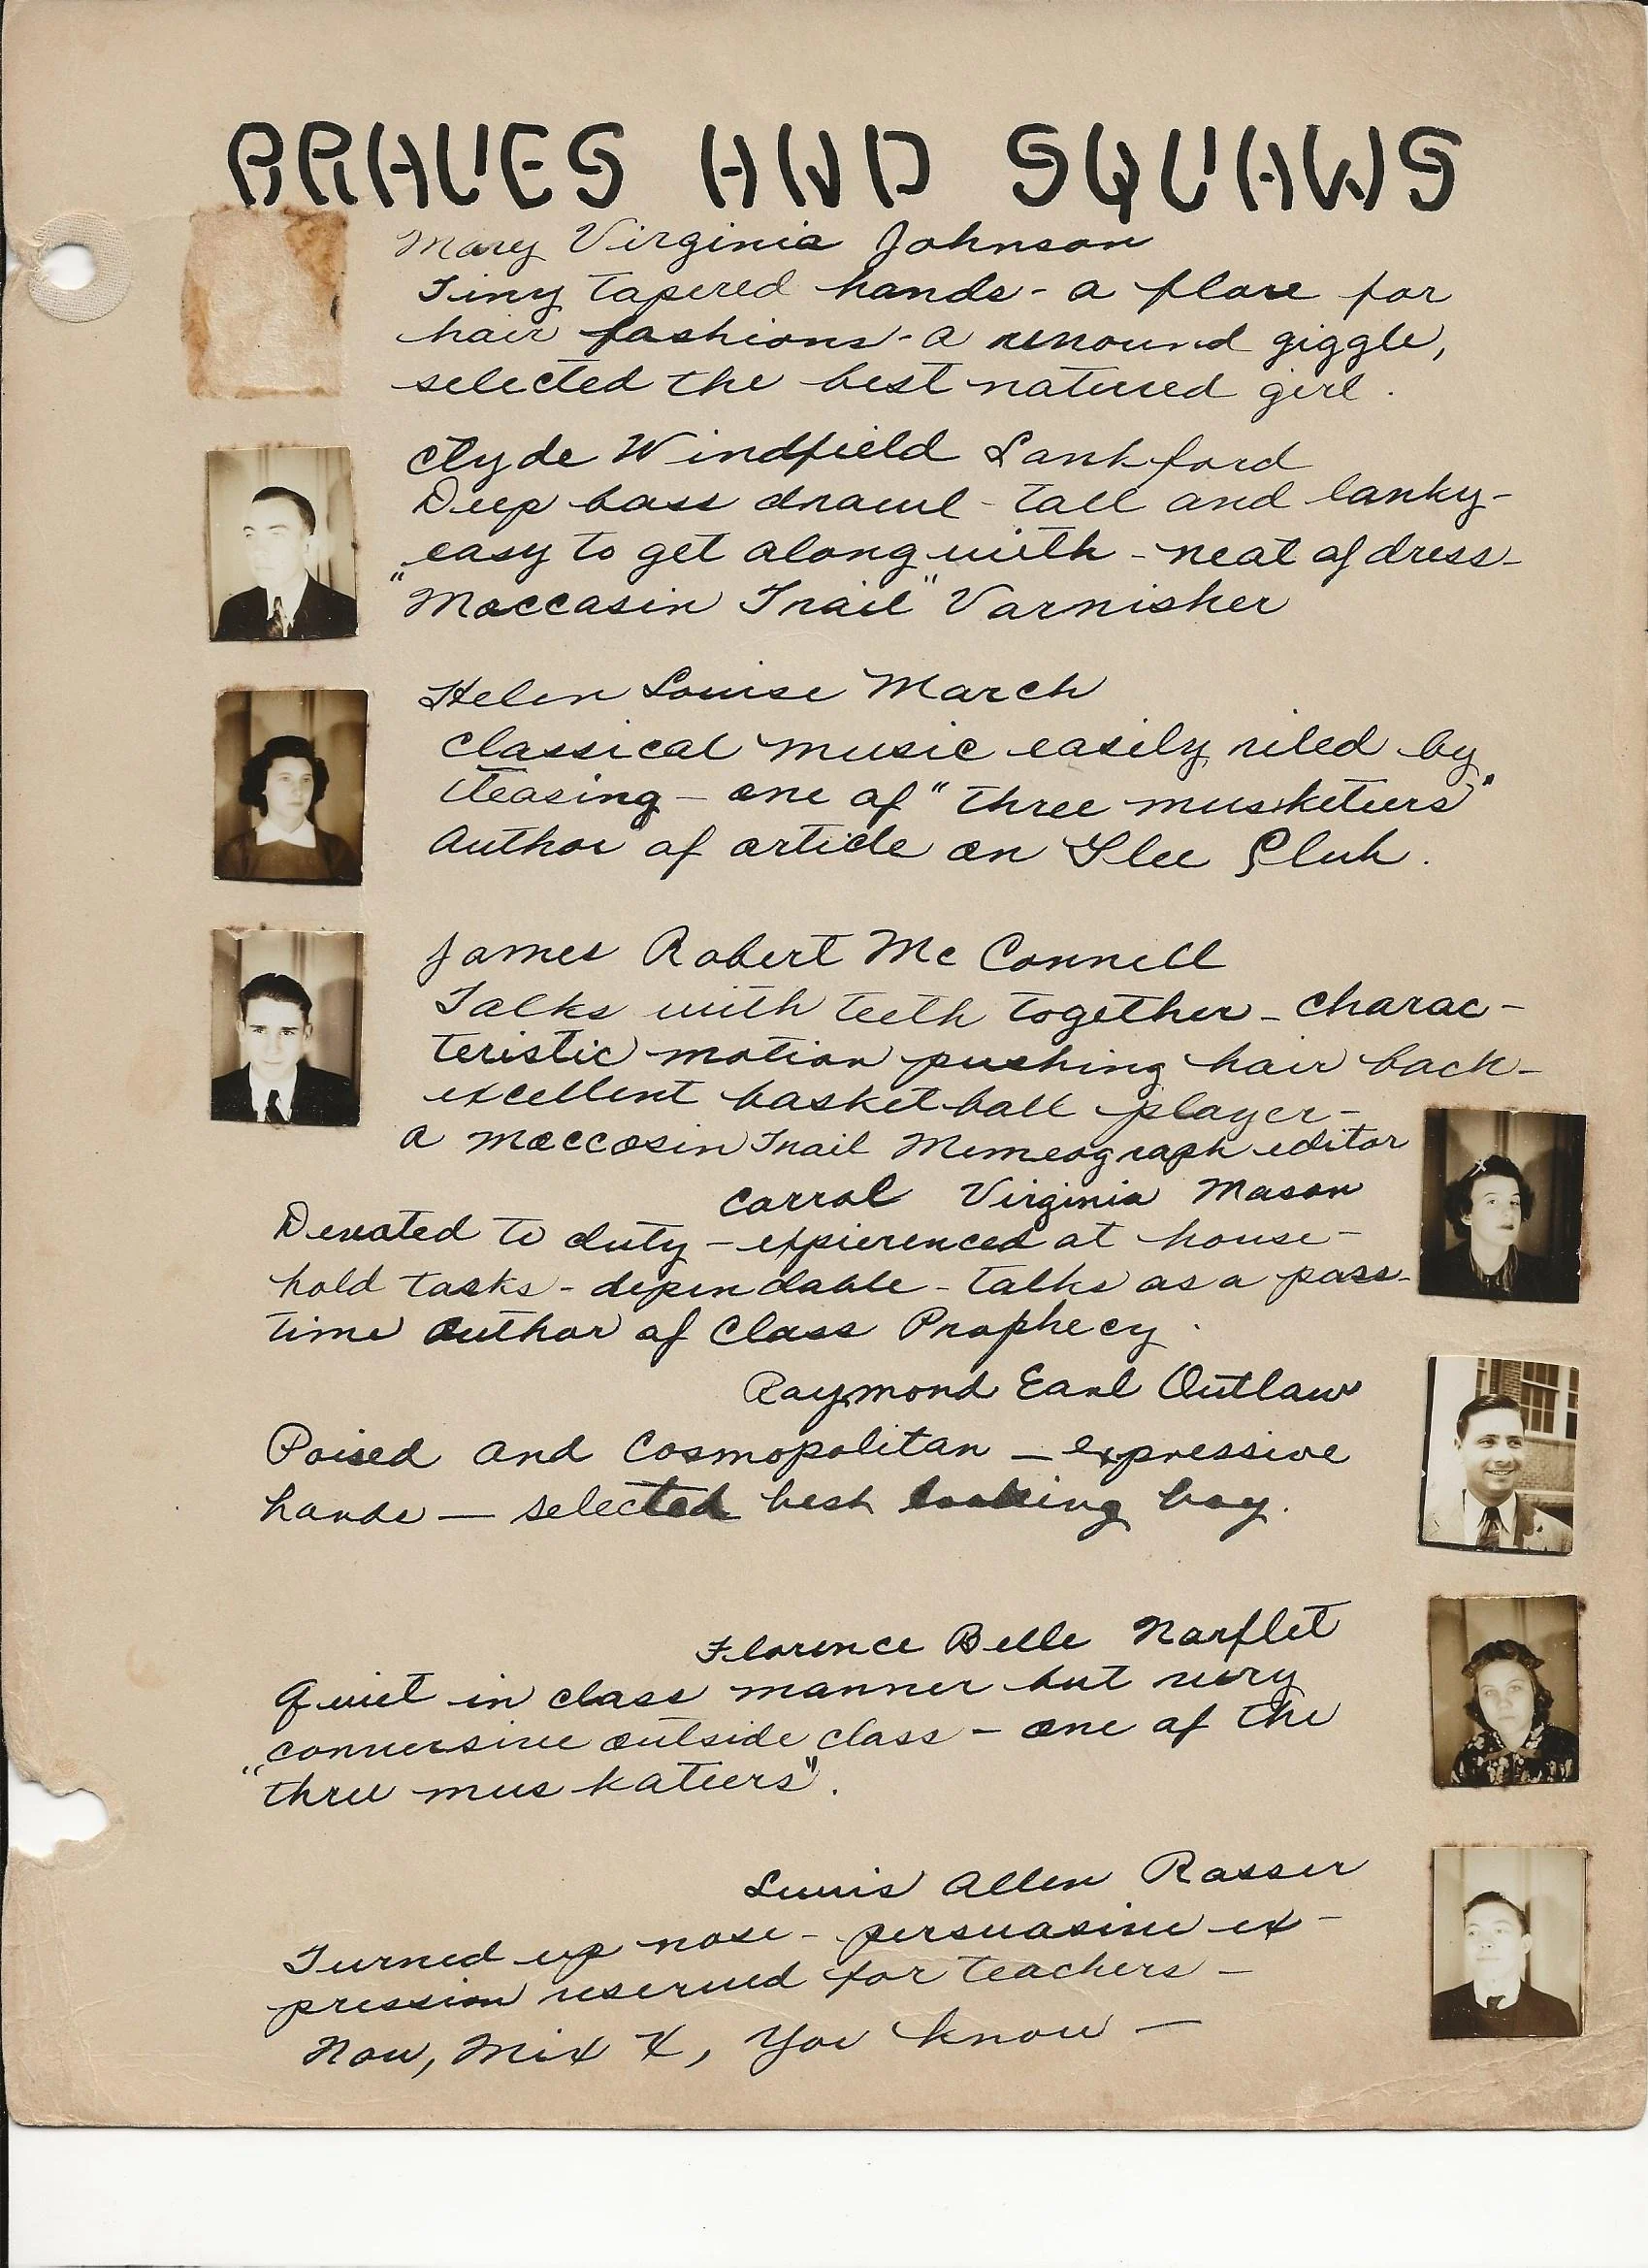 BRAVES AND SQUAWS
Mary Virginia Johnson
Tiny tapered hands - a flare for
hair fashions - a renound giggle,
selected the best natured girl.
Clyde Windfield Lankford
Deep bass drawl - tall and lanky -
easy to get along with - neat of dress -
"Moccasin Trail" Varnisher
Helen Louise March
Classical music easily riled by
teasing - one of "three musketeers"
Author of article on Glee Club.
James Robert McConnell
Talks with teeth together - charac-
teristic motion pushing hair back -
excellent basketball player -
a Moccasin Trail Mimeograph editor
Carrol Virginia Mason
Devoted to duty - expierenced at house-
hold tasks - dependable - talks as a pass-
time author of Class Prophecy.
Raymond Earl Outlaw
Poised and Cosmopolitan - expressive
hands - selected best looking boy.
Florence Belle Norflet
Quiet in class manner but very
conversive outside class - one of the
"three muskateers".
Lewis Allen Rosser
Turned up nose - persuasive ex-
pression reserved for teachers -
Now, Mix X, You know -